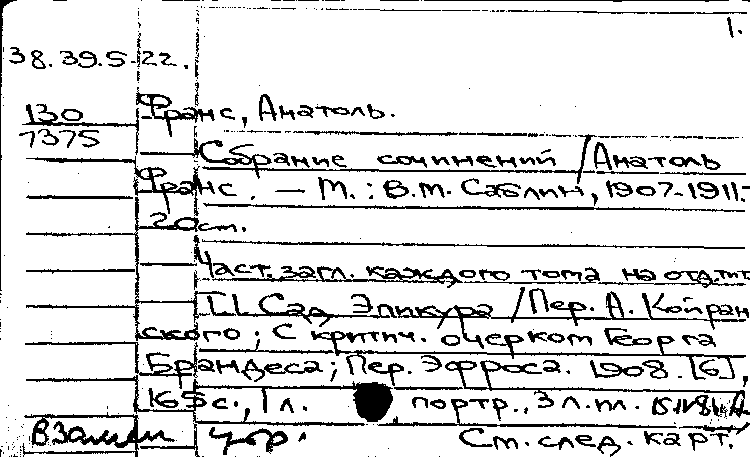 1.
38.39.5-22.
130 Франс, Анатоль.
7375
Собрание сочинений / Анатоль
Франс. — М.: В.М. Саблин, 1907-1911.-
20 см.
Част. загл. каждого тома на отд. тит
Т.I. Сад Эпикура / Пер. А. Койран
ского; С критич. очерком Георга
Брандеса; Пер. Эфроса. 1908. [6],
165 с., 1 л. портр., 3 л. ил.
Взамен См. след. карт.